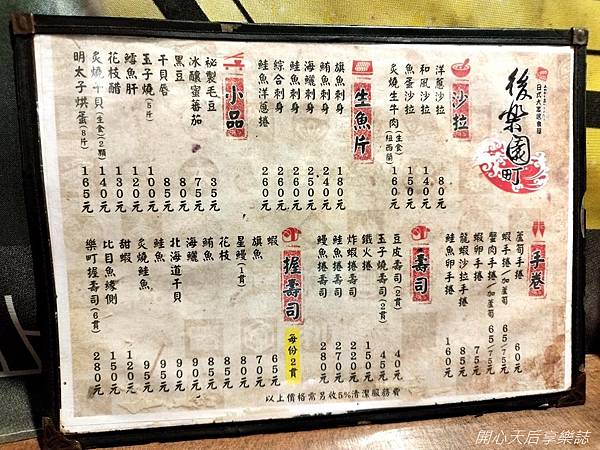 後樂園町
日式大眾居食屋
沙拉
洋蔥沙拉 80元
和風沙拉 140元
魚蛋沙拉 150元
炙燒生牛肉(生食)(紐西蘭) 160元
生魚片
旗魚刺身 180元
鮪魚刺身 240元
海鱺刺身 250元
鮭魚刺身 260元
綜合刺身 260元
鮭魚洋蔥捲 260元
小品
祕製毛豆 35元
冰釀蜜蕃茄 75元
黑豆 85元
干貝唇 85元
玉子燒(5片) 100元
鱈魚肝 120元
花枝醋 130元
炙燒干貝(生食)(2顆) 140元
明太子烘蛋(8片) 165元
手卷
蘆筍手捲 60元
蝦手捲/加蘆筍 65/75元
蟹肉手捲/加蘆筍 65/75元
蝦卵手捲 75元
龍蝦沙拉手捲 85元
鮭魚卵手捲 160元
壽司
豆皮壽司(2貫) 40元
玉子燒壽司(2貫) 45元
鐵火捲 150元
炸蝦捲壽司 220元
鮭魚捲壽司 270元
鰻魚捲壽司 280元
握壽司
每份2貫
蝦 65元
旗魚 70元
星鰻(1貫) 80元
花枝 85元
鮪魚 85元
海鱺 90元
北海道干貝 90元
鮭魚 95元
炙燒鮭魚 95元
甜蝦 120元
比目魚緣側 150元
樂町握壽司(6貫) 280元
以上價格需另收5%清潔服務費
開心天后享樂誌